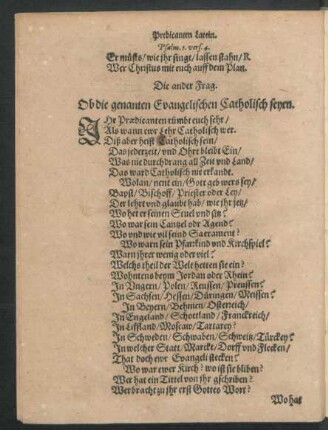 Predicanten Latein.
Psalm. 1. vers. 4.
Er müste / wie jhr singt / lassen stahn / R
Wer Christus mit euch auff dem Plan.
Die ander Frag.
Ob die genanten Evangelischen Catholisch seyen.
IHr Prædicanten rümbt euch sehr /
Als wann ewr Lehr Catholisch wer.
Diß aber heist Catholisch sein /
Das jederzeit / und Ohrt bleibt Ein /
Was nie durchdrang all Zeit und Land /
Das ward Catholisch nie erkandt.
Wolan / nent ein / Gott geb wers sey /
Bapst / Bischoff / Priester oder Ley /
Der lehrt und glaubt hab / wie jhr jetz /
Wo het er seinen Stuel und sitz?
Wo war sein Cantzel odr Agend?
Wo und wie vil seind Sacrament?
Wo warn sein Pfarkind und Kirchspiel?
Warn jhrer wenig oder viel?
Welchs theil der Welt hetten sie ein?
Wohntens beym Jordan oder Rhein?
In Ungern / Polen / Reussen / Preussen?
In Sachsen / Hessen / Düringen / Meissen?
In Beyern / Behmen / Osterreich /
In Engeland / Schottland / Franckreich /
In Liffland / Moscaw / Tattarey?
In Schweden / Schwaben / Schweitz / Türckey?
In welcher Statt / Marckt / Dorff und Flecken /
That doch ewr Evangeli stecken?
Wo war ewer Kirch? wo ist sie blieben?
Wer hat ein Tittel von jhr gschriben?
Wer bracht zu jhr erst Gottes Wort?
Wo hat